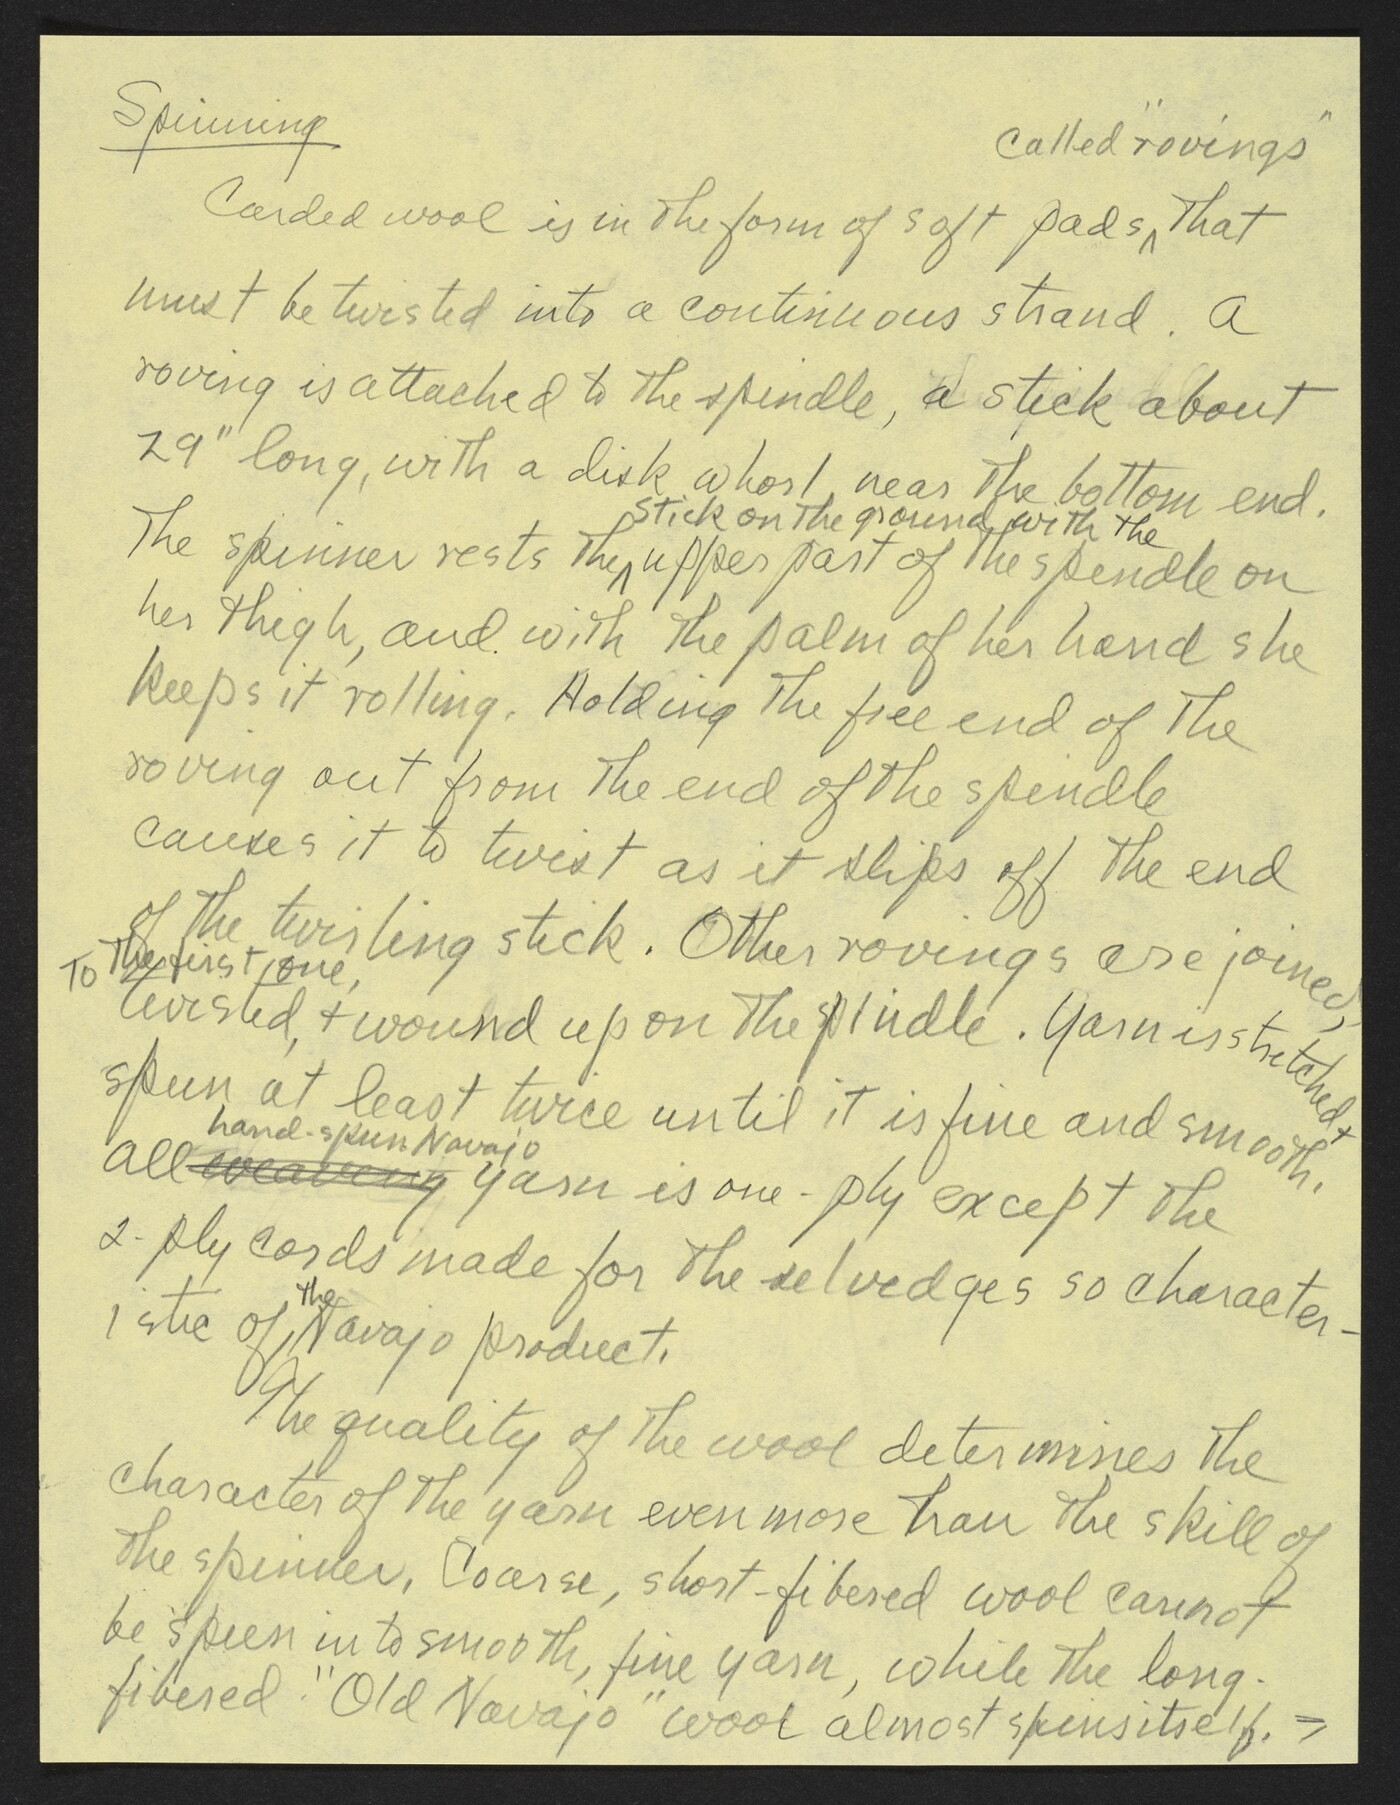 Spinning
called "rovings"
Carded wool is in the form of soft pads ^ that
must be twisted into a continuous strand. A
roving is attached to the spindle, a stick about
29" long, with a disk whorl near the bottom end.
stick on the ground, with the
The spinner rests the ^ upper part of the spindle on
her thigh, and with the palm of her hand she
keeps it rolling. Holding the free end of the
roving out from the end of the spindle
causes it to twist as it slips off the end
of the twirling stick. Other rovings are joined,
To the first one,
twisted, + wound up on the spindle. Yarn is stretched +
spun at least twice until it is fine and smooth.
hand-spun Navajo
All weaving yarn is one-ply except the
2-ply cords made for the selvedges so character-
the
istic of ^ Navajo product.
The quality of the wool determines the
character of the yarn even more than the skill of
the spinner. Coarse, short-fibered wool cannot
be spun into smooth, fine yarn, while the long-
fibered "Old Navajo" wool almost spins itself. →